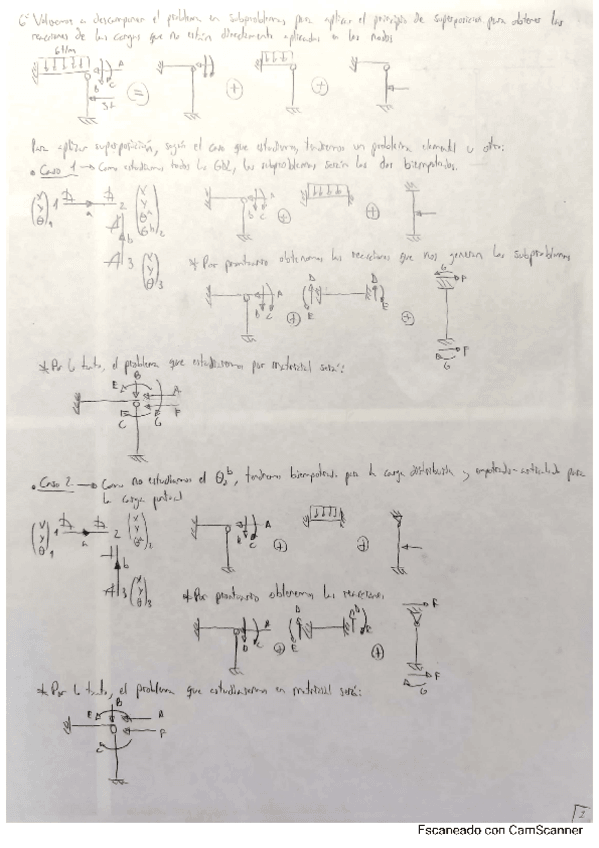 6º Volvemos a descomponer el problema en subproblemas para aplicar el principio de superposición para obtener las
reacciones de las cargas que no están directamente aplicadas en los nodos
6 t/m
A
B C
3t
Para aplicar superposición, según el caso que estudiemos, tendremos un problema elemental u otro:
• Caso 1 → Como estudiamos todos los GDL, los subproblemas serán los dos biempotrados.
* Por prontuario obtenemos las reacciones que nos generan los subproblemas
* Por lo tanto, el problema que estudiaremos por matricial será:
• Caso 2 → Como no estudiamos el θ₂ᵇ, tendremos biempotrada para la carga distribuida y empotrado-articulado para
la carga puntual
* Por prontuario obtenemos las reacciones
* Por lo tanto, el problema que estudiaremos en matricial será:
1
Escaneado con CamScanner